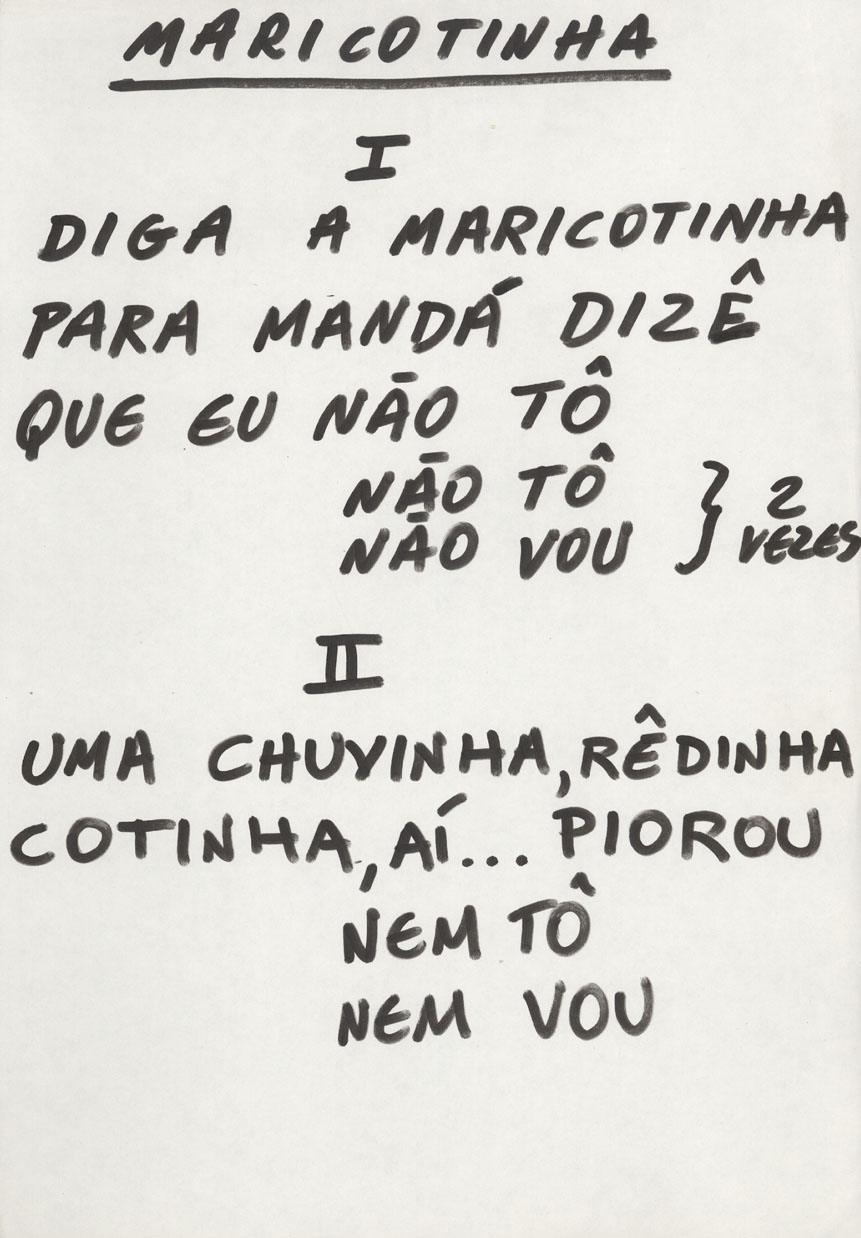 MARICOTINHA
I
DIGA A MARICOTINHA
PARA MANDÁ DIZÊ
QUE EU NÃO TÔ
NÃO TÔ } 2
NÃO VOU } VEZES
II
UMA CHUVINHA, RÊDINHA
COTINHA, AÍ... PIOROU
NEM TÔ
NEM VOU